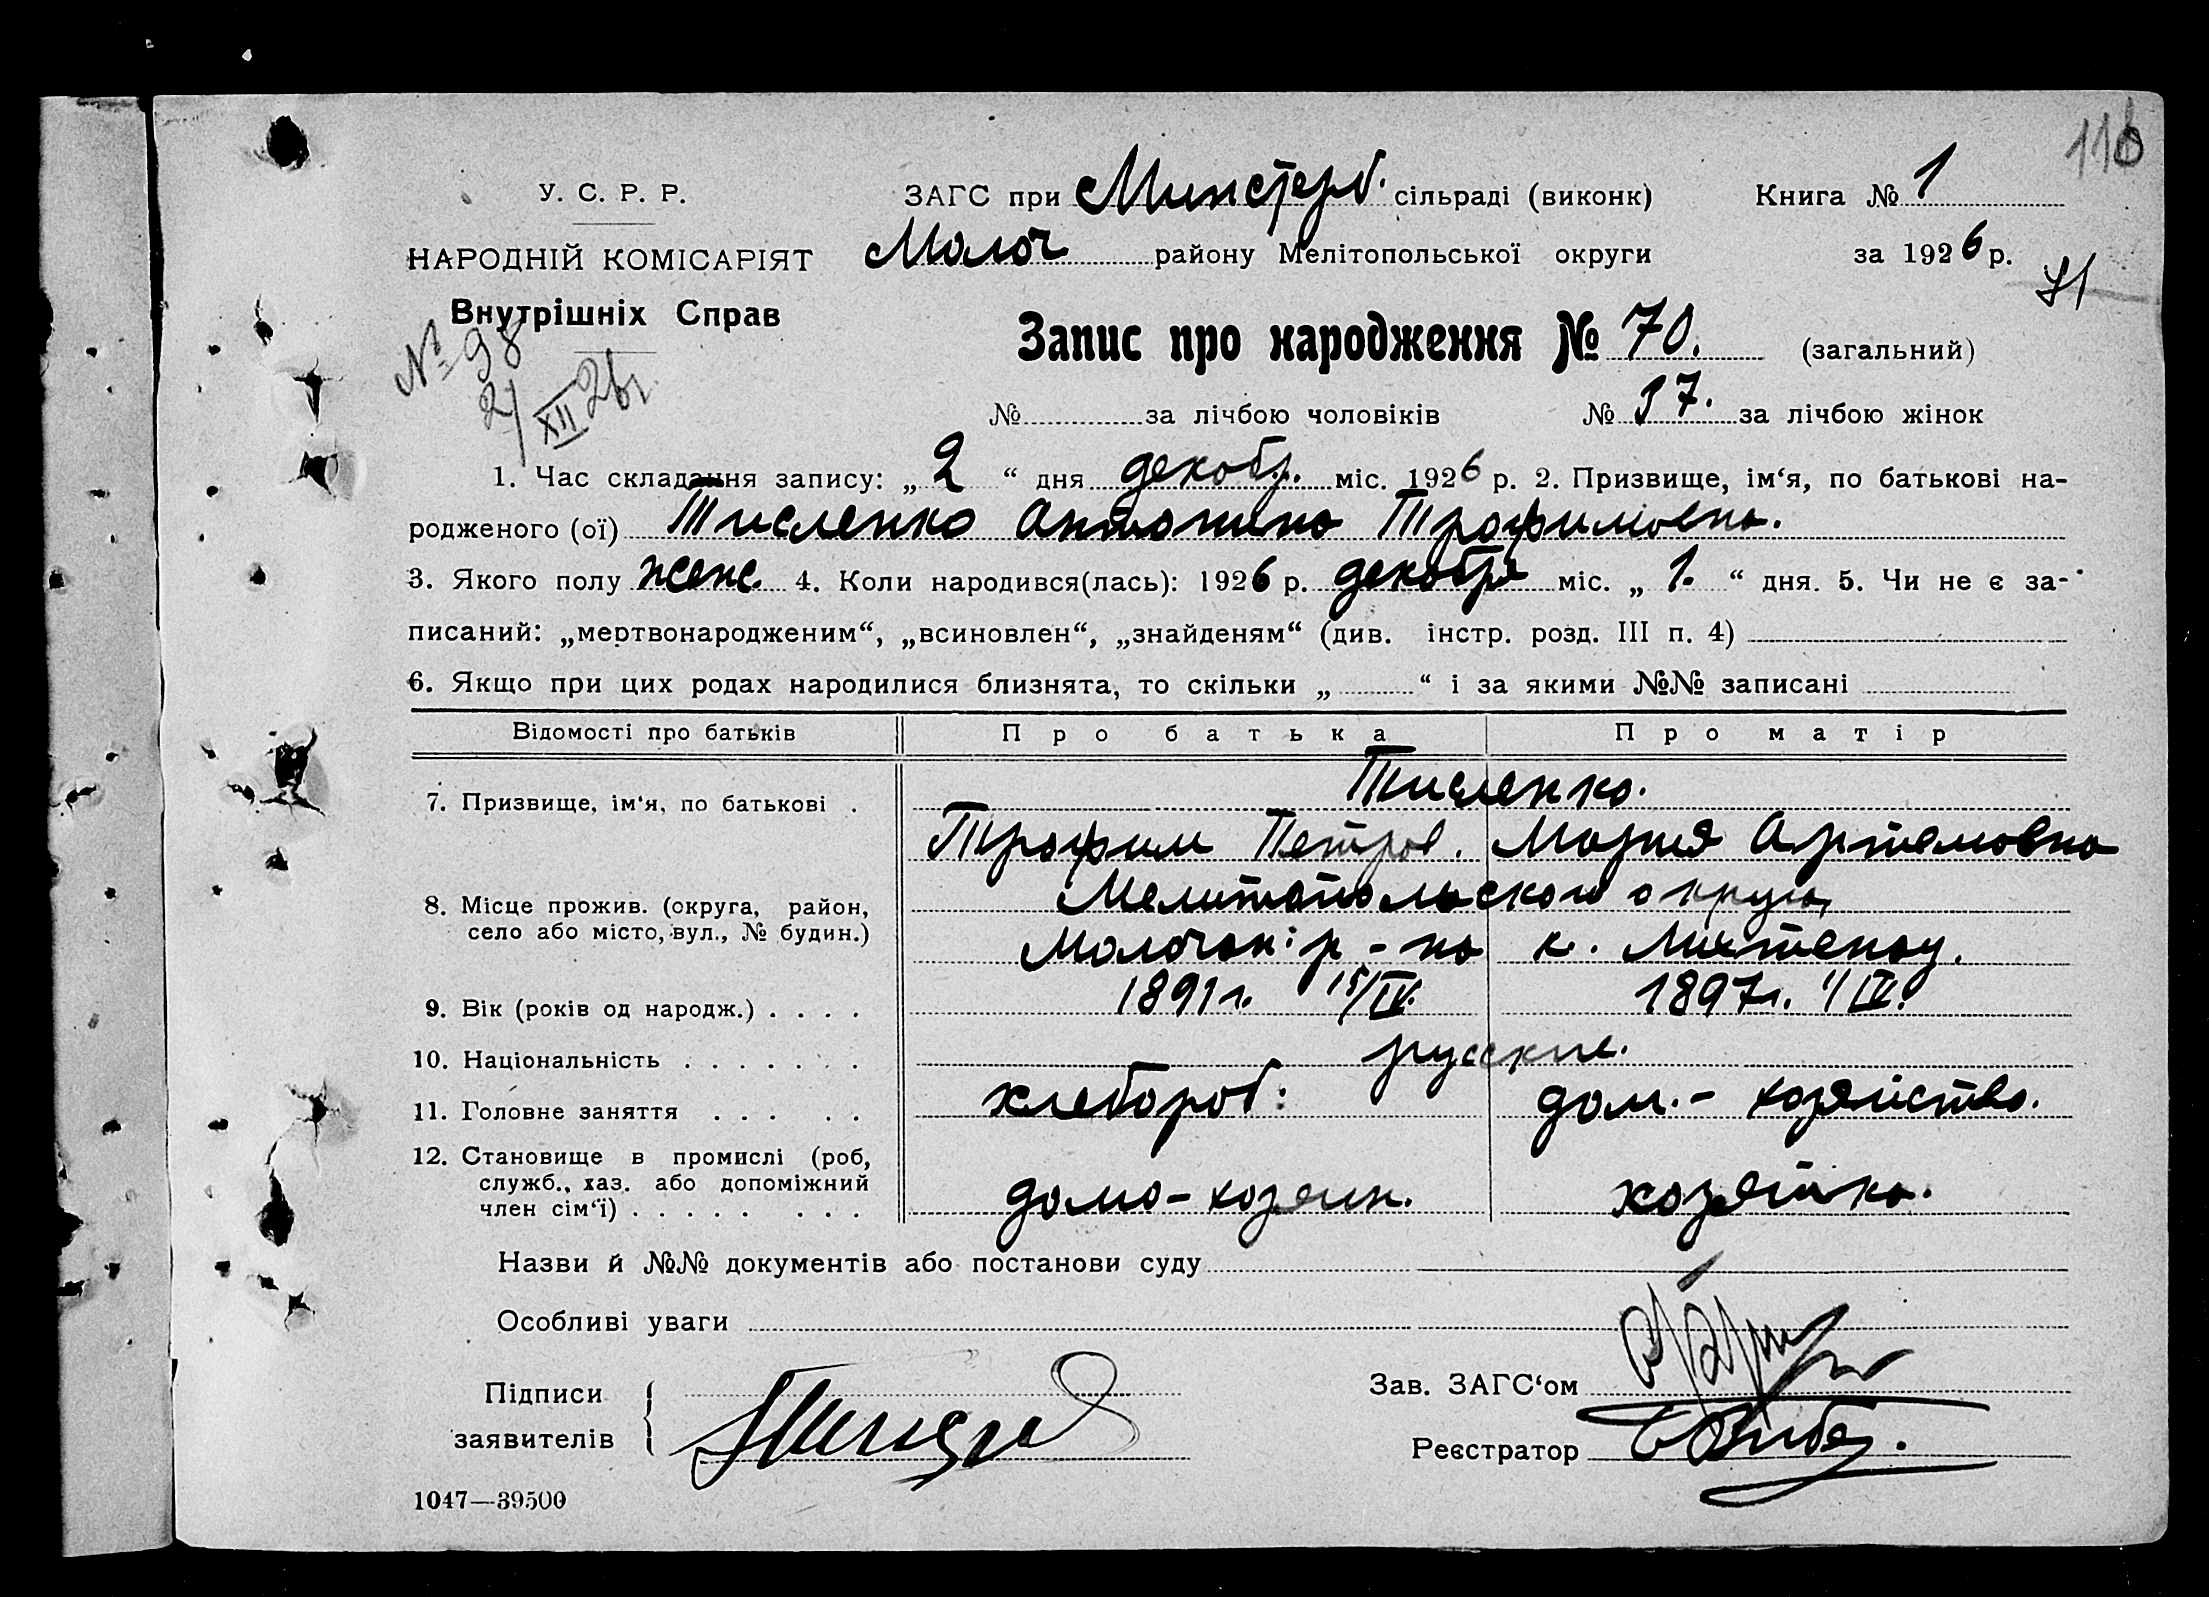 116
У. С. Р. Р.
ЗАГС при Минстерб. сільраді (виконк) Книга № 1
НАРОДНІЙ КОМІСАРІЯТ
Молоч району Мелітопольської округи за 1926 р.
71
Внутрішніх Справ
№ 98
2/XII 26 г.
Запис про народження № 70. (загальний)
№ за лічбою чоловіків № 37. за лічбою жінок
1. Час складання запису: „ 2 “ дня декабр. міс. 1926 р. 2. Призвище, ім‘я, по батькові на-
родженого (ої) Тисленко Антонина Трофимовна.
3. Якого полу женс. 4. Коли народився(лась): 1926 р. декабря міс. „ 1. “ дня. 5. Чи не є за-
писаний: „мертвонародженим“, „всиновлен“, „знайденям“ (див. інстр. розд. III п. 4)
6. Якщо при цих родах народилися близнята, то скільки „ “ і за якими №№ записані
Відомості про батьків Про батька Про матір
7. Призвище, ім‘я, по батькові . Тисленко.
Трофим Петров. Мария Артемовна
8. Місце прожив. (округа, район, село або місто, вул., № будин.) Мелитопольского округа,
Молочан: р-на к. Лихтенау.
9. Вік (років од народж.) . . . . 1891 г. 15/IV. 1897 г. 1/IV.
10. Національність . . . . . . . русские.
11. Головне заняття . . . . . хлебороб: дом.- хозяйство.
12. Становище в промислі (роб, служб., хаз. або допоміжний член сім‘ї) . . . . . . . . домо-хозяин. хозяйка.
Назви й №№ документів або постанови суду
Особливі уваги
Підписи
заявителів
Зав. ЗАГС‘ом
Реєстратор
1047—39500